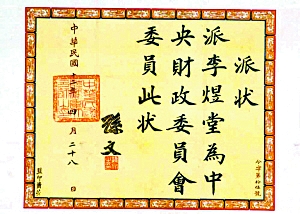 派狀
派李煜堂為中
央財政委員會
委員此狀
孫文
中華民國十二年四月二十八日